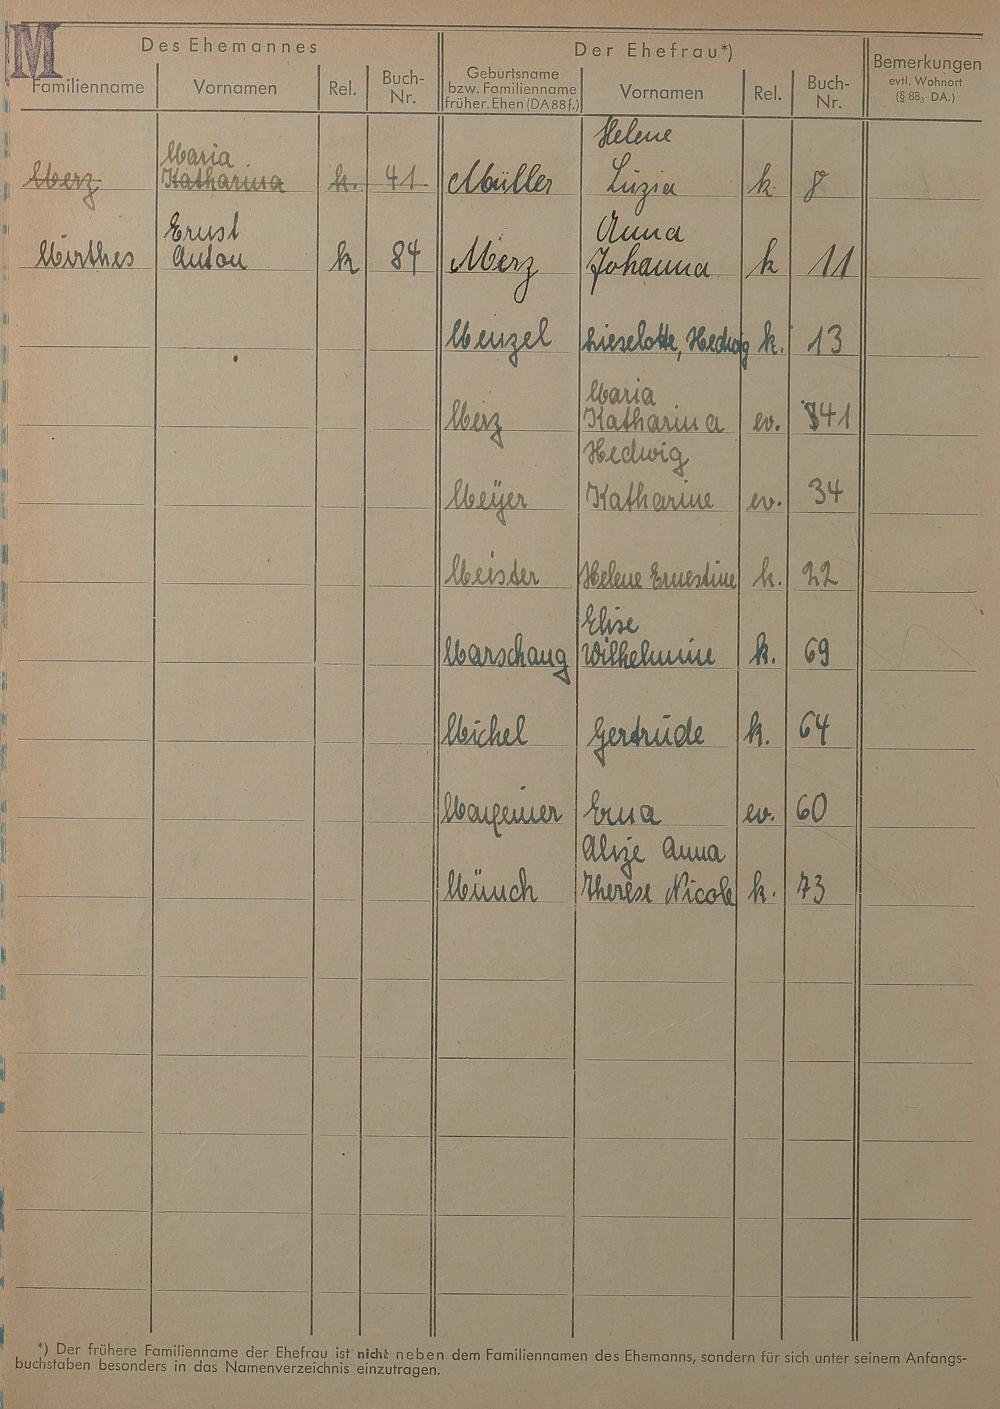 M
Des Ehemannes
Der Ehefrau*)
Bemerkungen
evtl. Wohnort
(§ 88, DA.)
Familienname Vornamen Rel. Buch-Nr.
Geburtsname bzw. Familienname früher. Ehen (DA 88 f.) Vornamen Rel. Buch-Nr.
Maria Helene
Merz Katharina k. 41 Müller Luzia k 8
Ernst Anna
Mirthes Anton k 84 Merz Johanna k 11
Menzel Lieselotte, Hedwig k. 13
Maria
Merz Katharina ev. 41
Hedwig
Meyer Katharine ev. 34
Meister Helene Ernestine k. 22
Elise
Marschang Wilhelmine k. 69
Michel Gertrude k. 64
Erna ev. 60
Alize Anna
Münch Therese Nicole k. 73
*) Der frühere Familienname der Ehefrau ist nicht neben dem Familiennamen des Ehemanns, sondern für sich unter seinem Anfangs-
buchstaben besonders in das Namenverzeichnis einzutragen.